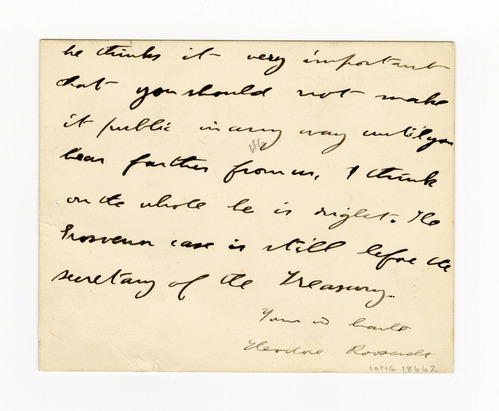 he thinks it very important
that you should not make
it public in any way until you
hear further from us. I think
on the whole he is right. The
Grosvenor case is still before the
secretary of the Treasury.
Yours in haste
Theodore Roosevelt
LOMG 18662